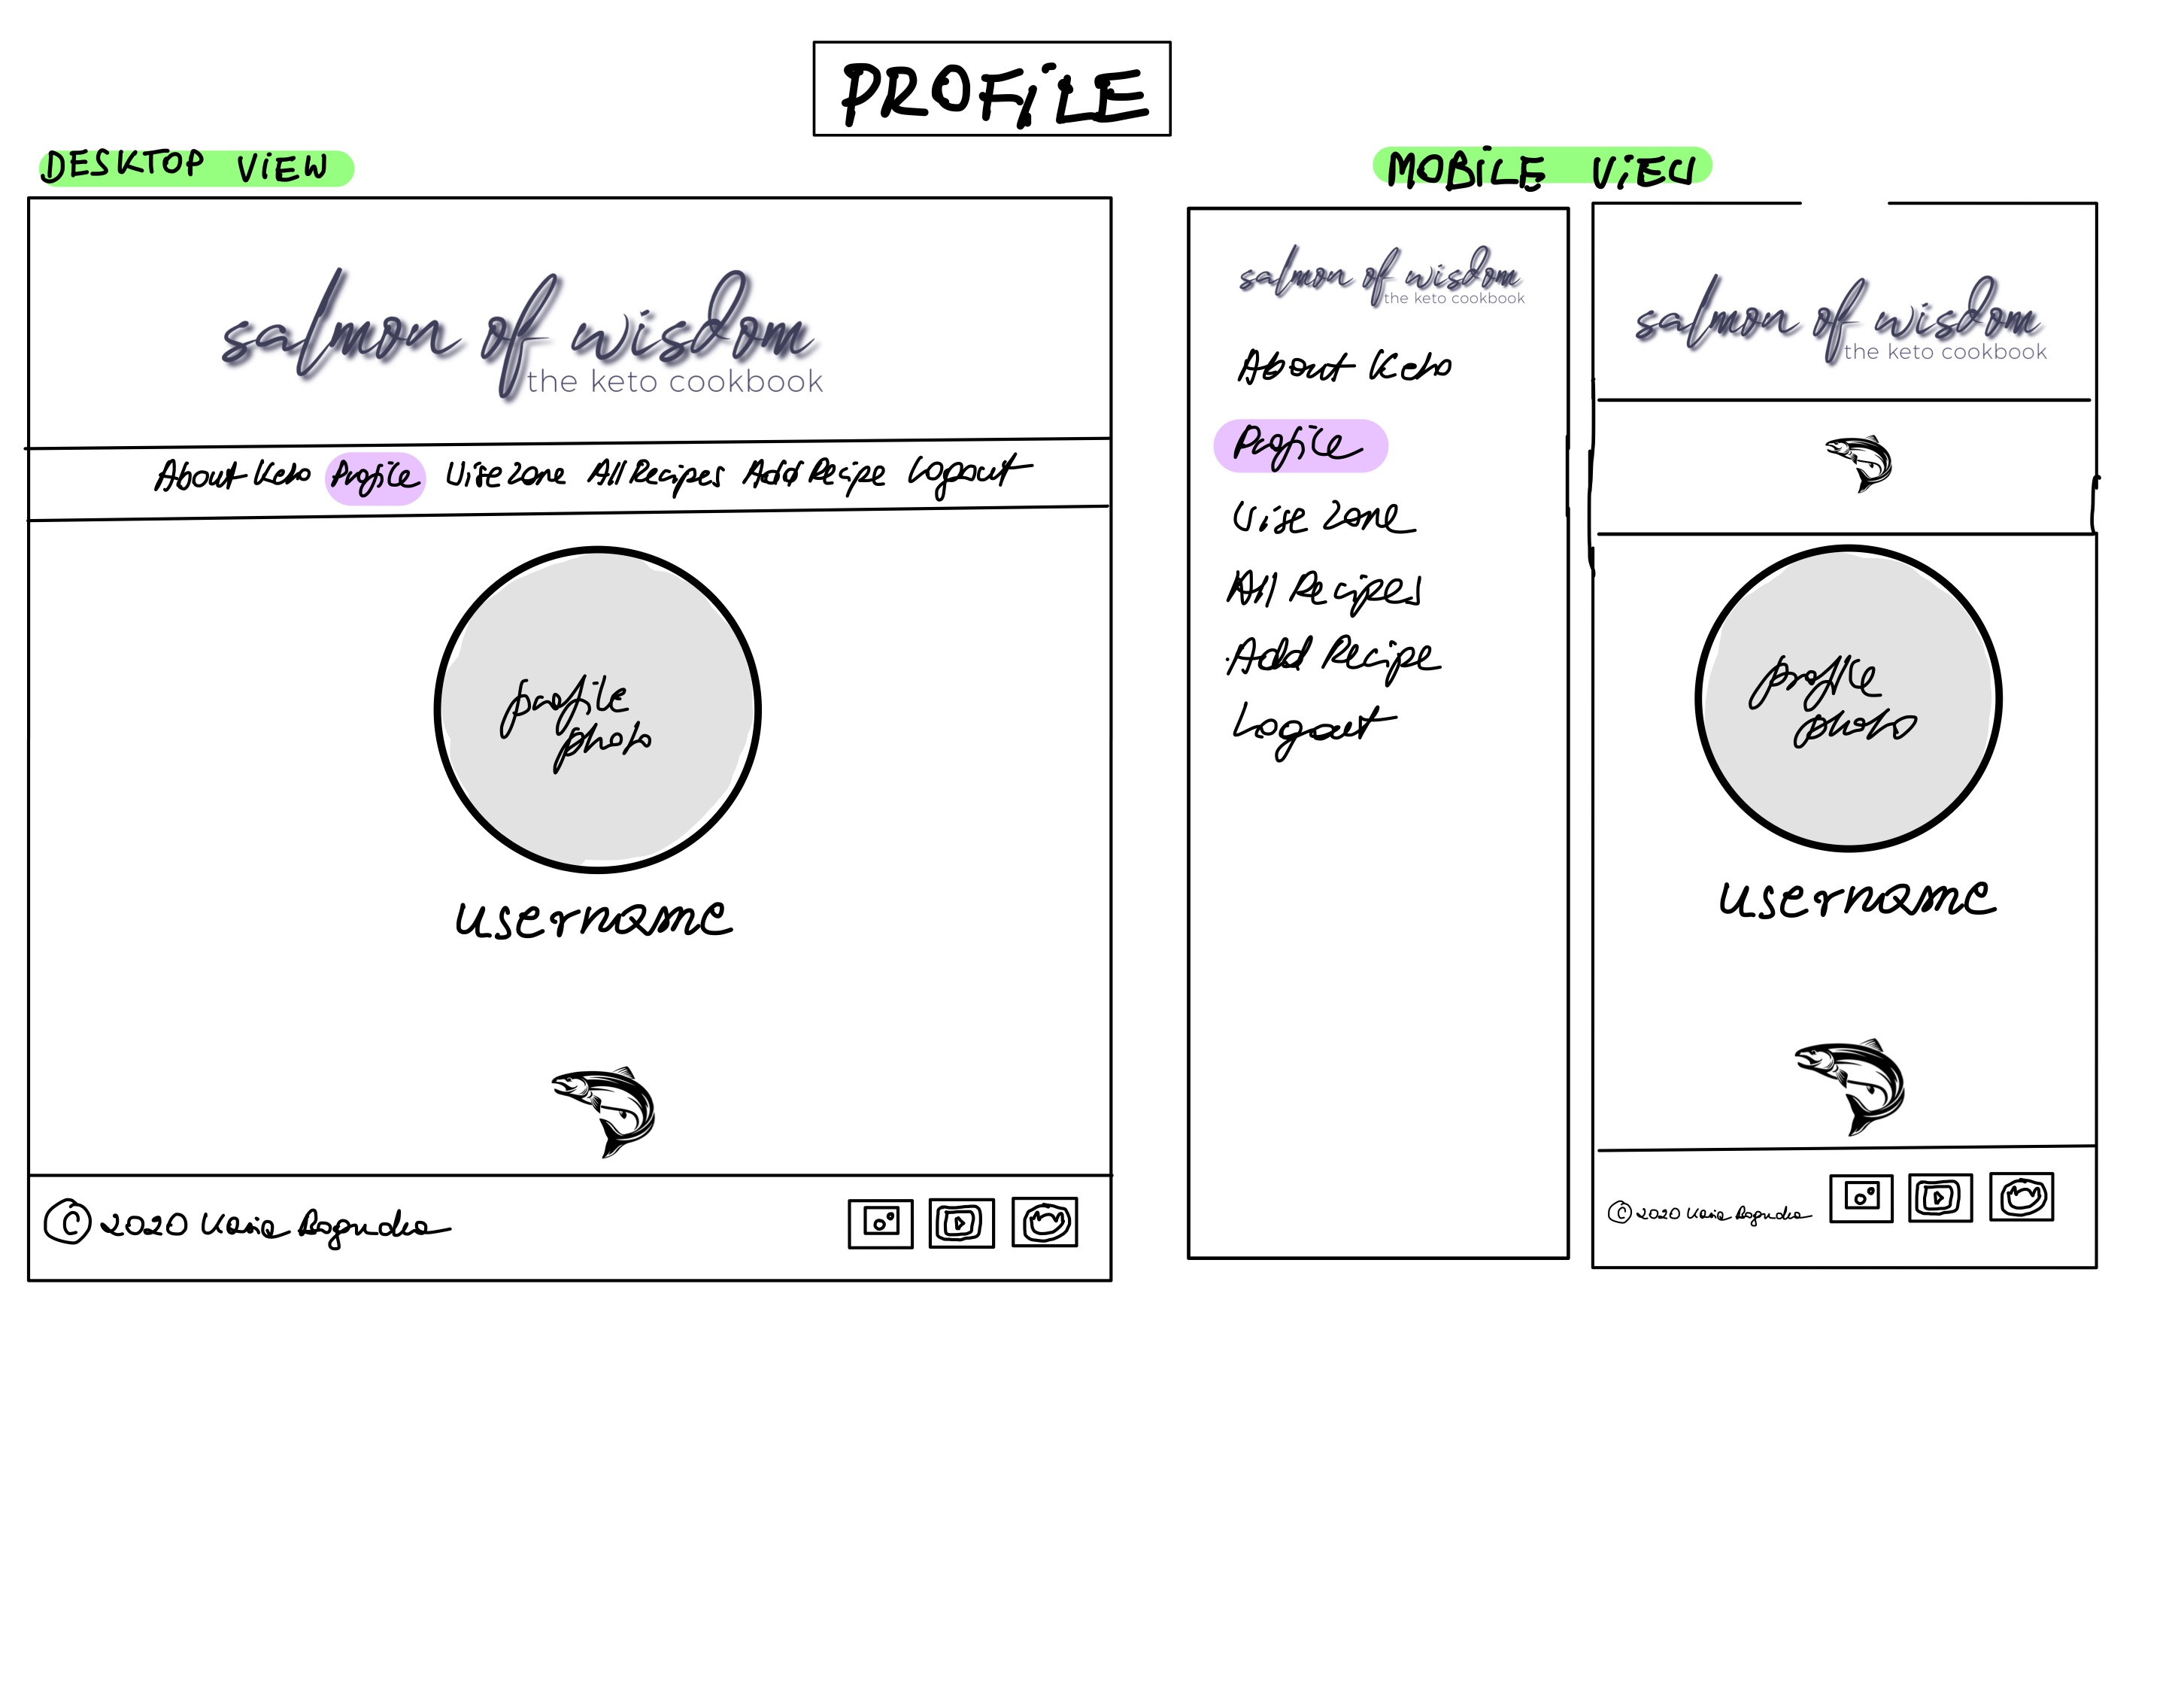 PROFiLE
DESKTOP ViEW
salmon of wisdom
the keto cookbook
About Keto Profile Wise Zone All Recipes Add Recipe Logout
profile
photo
username
© 2020 Kasia
MOBiLE ViEW
salmon of wisdom
the keto cookbook
About Keto
Profile
Wise Zone
All Recipes
Add Recipe
Logout
salmon of wisdom
the keto cookbook
profile
photo
username
© 2020 Kasia